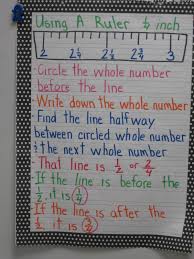 Using A Ruler 1/4 inch
2 2 1/4 2 1/2 2 3/4 3
·Circle the whole number
before the line
·Write down the whole number
·Find the line halfway
between circled whole number
& the next whole number
·That line is 1/2 or 2/4
·If the line is before the
1/2, it is 1/4
·If the line is after the
1/2, it is 3/4